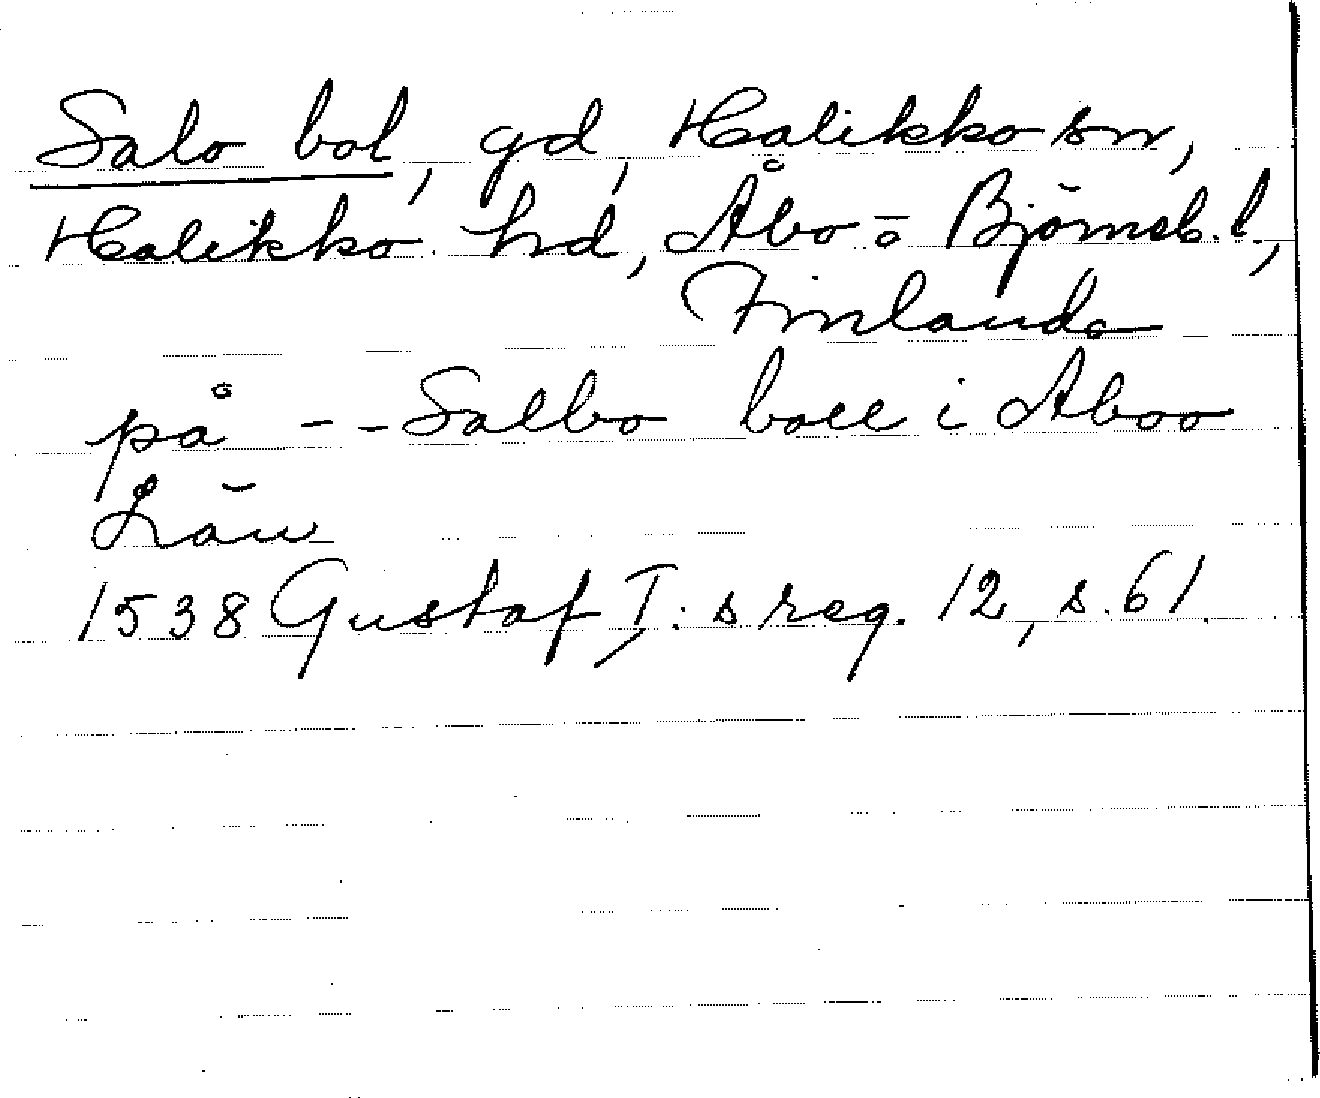 Salo bol, gd, Halikko sn,
Halikko hd, Åbo-ö Björneb. l.,
Finland
på -- Salbo boll i Aboo
Län
1538 Gustaf I:s reg. 12, s. 61.